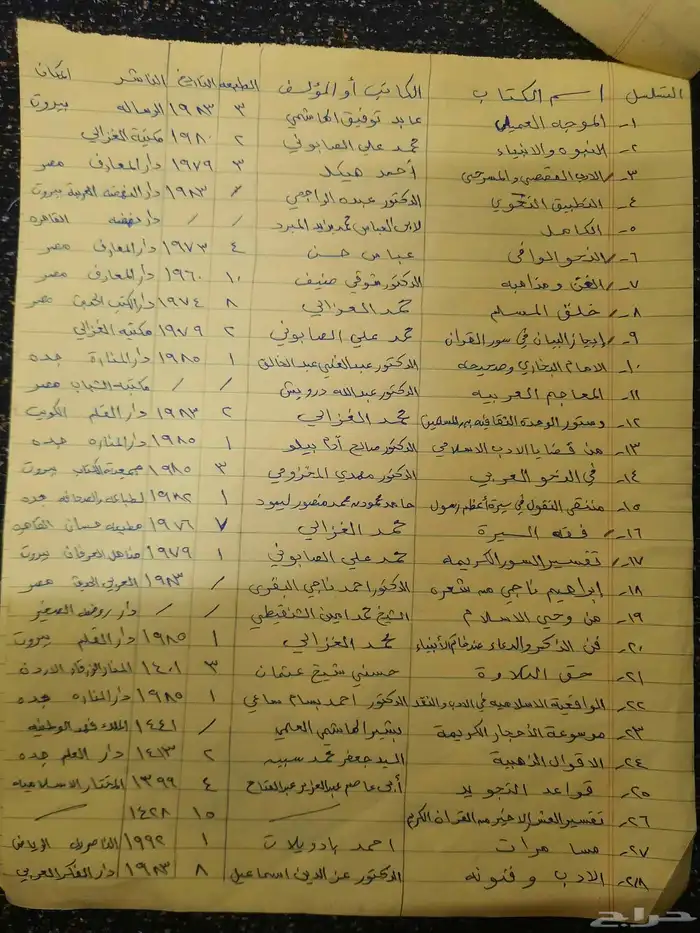 التسلسل اسم الكتاب الكاتب أو المؤلف الطبعه التاريخ الناشر المكان
١- الموجه العملي عابد توفيق الهاشمي ٣ ١٩٨٣ الرساله بيروت
٢- النبوه والانبياء محمد علي الصابوني ٢ ١٩٨٠ مكتبة الغزالي
٣- الادب القصصي والمسرحي أحمد هيكل ٣ ١٩٧٩ دار المعارف مصر
٤- التطبيق النحوي الدكتور عبده الراجحي / ١٩٨٣ دار النهضه العربية بيروت
٥- الكامل لابي العباس محمد بن يزيد المبرد / / دار نهضه القاهره
٦- النحو الوافي عباس حسن ٤ ١٩٧٣ دار المعارف مصر
٧- الفن ومذاهبه الدكتور شوقي ضيف ١٠ ١٩٦٠ دار المعارف مصر
٨- خلق المسلم محمد الغزالي ٨ ١٩٧٤ دار الكتب مصر
٩- إيجاز البيان في سور القران محمد علي الصابوني ٢ ١٩٧٩ مكتبه الغزالي
١٠- الامام البخاري وصحيحه الدكتور عبد الغني عبد الخالق ١ ١٩٨٥ دار المنارة جده
١١- المعاجم العربيه الدكتور عبدالله درويش / / مكتبة الشباب مصر
١٢- دستور الوحدة الثقافيه بين المسلمين محمد الغزالي ٢ ١٩٨٣ دار القلم الكويت
١٣- من قضايا الادب الاسلامي الدكتور صالح آدم بيلو ١ ١٩٨٥ دار المناره جده
١٤- في النحو العربي الدكتور مهدي المخزومي ٣ ١٩٨٥ بيروت
١٥- منتقى النقول في سيرة أعظم رسول حامد محمود بن محمد منصور ليمود ١ ١٩٨٢ لطباعه والصحافه جده
١٦- فقه السيرة محمد الغزالي ٧ ١٩٧٦ مطبعه حسان القاهره
١٧- تفسير السور الكريمه محمد علي الصابوني ١ ١٩٧٩ مناهل العرفان بيروت
١٨- إبراهيم ناجي من شعره الدكتور احمد ناجي / ١٩٨٣ العربي مصر
١٩- من وحي الاسلام الشيخ محمد امين الشنقيطي / / دار روضه الصغير
٢٠- فن الذكر والدعاء عند خاتم الأنبياء محمد الغزالي ١ ١٩٨٥ دار القلم بيروت
٢١- حق التلاوة حسني شيخ عثمان ٣ ١٤٠١ المنار الزرقاء الاردن
٢٢- الواقعية الاسلاميه في الادب والنقد الدكتور احمد بسام ساعي ١ ١٩٨٥ دار المناره جده
٢٣- موسوعة الأحجار الكريمة بشير الهاشمي العلمي / ١٤٤١ الملك فهد الوطنيه
٢٤- الاقوال الذهبية السيد جعفر محمد سبيه ٢ ١٤١٣ دار العلم جده
٢٥- قواعد التجويد أبي عاصم عبدالعزيز عبدالفتاح ٤ ١٣٩٩ المختار الاسلاميه
٢٦- تفسير العشر الاخير من القران الكريم / ١٥ ١٤٢٨ /
٢٧- مسامرات احمد بادويلان ١ ١٩٩٢ الرياض
٢٨- الادب وفنونه الدكتور عز الدين اسماعيل ٨ ١٩٨٣ دار الفكر العربي
حراج